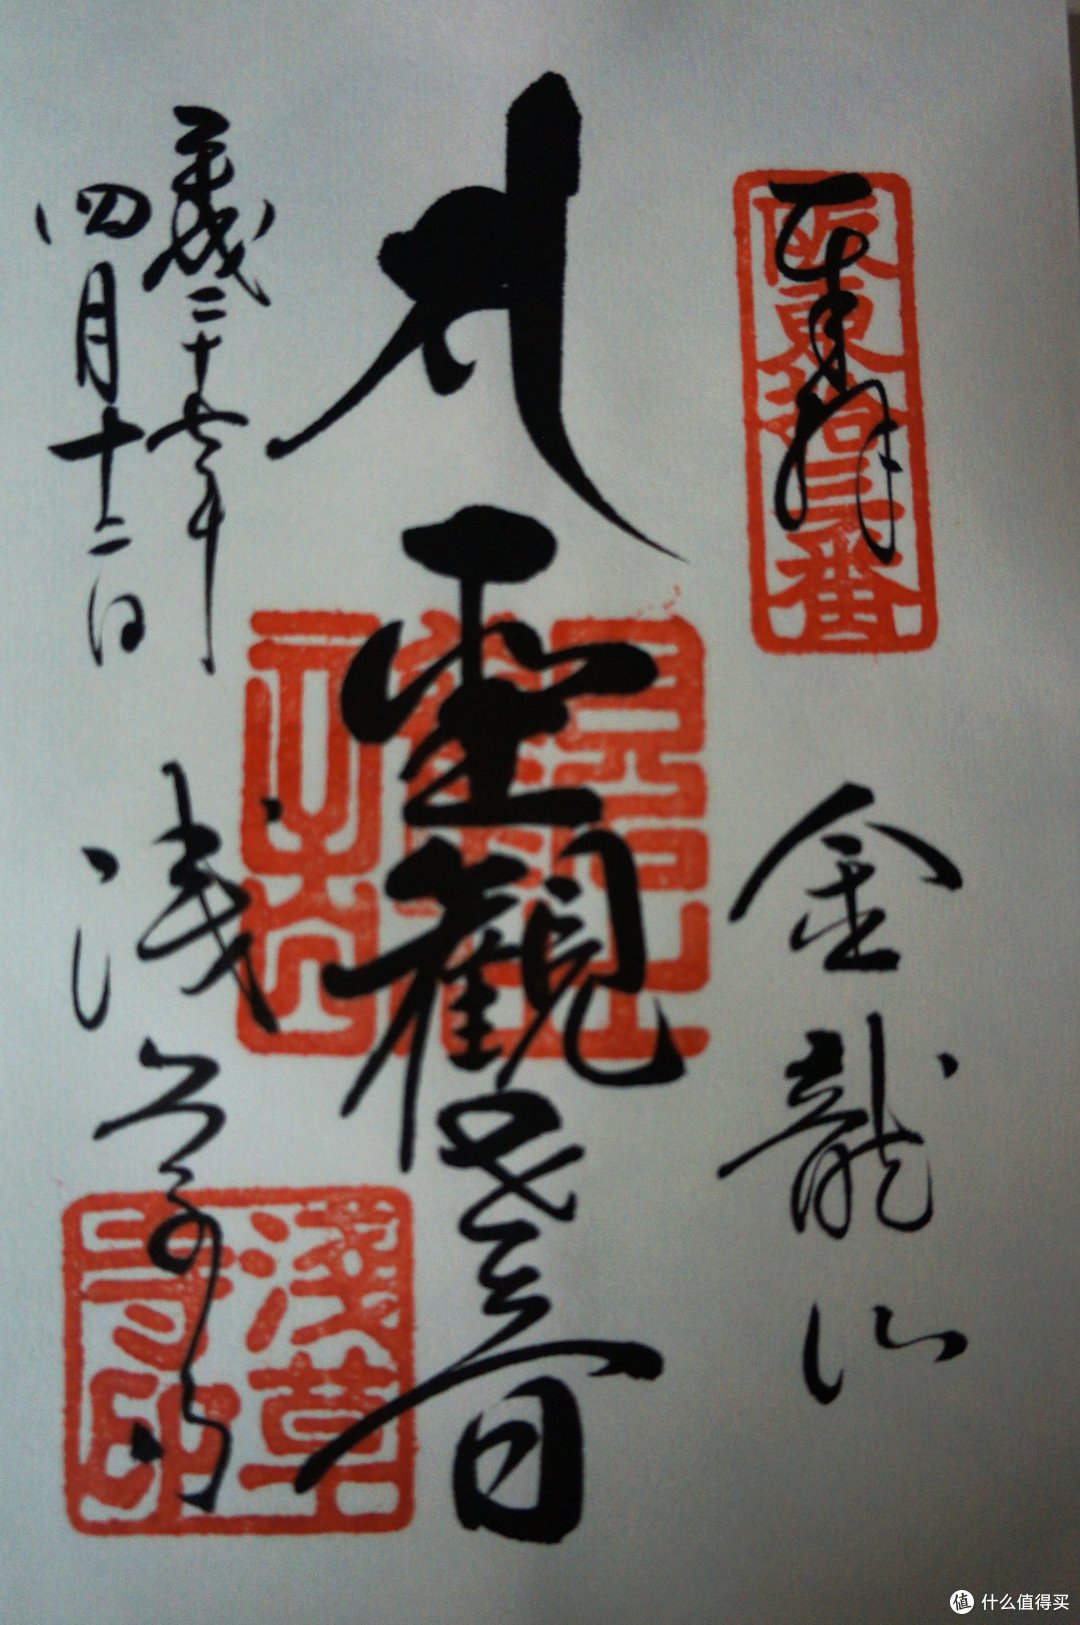 奉拝
阪東拾三番
金龍山
聖観世音
平成二十七年
四月十二日
浅草寺
浅草
寺印
值 什么值得买